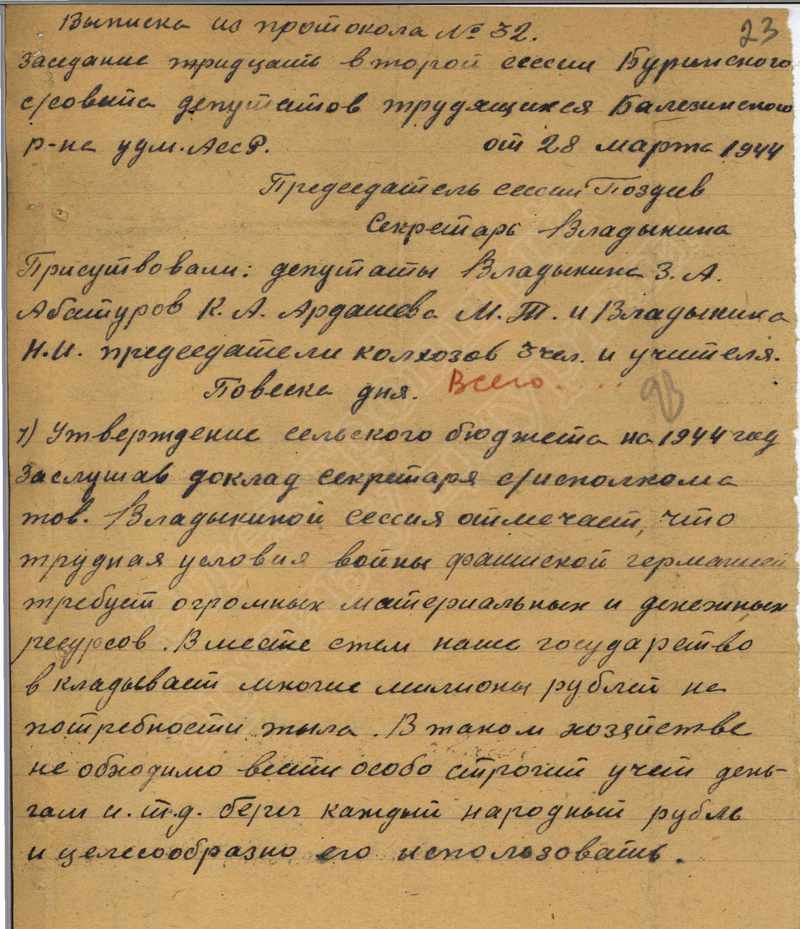 Выписка из протокола № 32.
23
Заседание тридцать второй сессии Буринского
с/совета депутатов трудящихся Балезинского
р-на удм. АссР. от 28 марта 1944
Председатель сессии Поздев
Секретарь Владыкина
Присутвовали: депутаты Владыкина З. А.
Абатуров К. А. Ардашева М. Т. и Владыкина
Н.И. председатели колхозов 3 чел. и учителя.
Повеска дня. Всего...
1) Утверждение сельского бюджета на 1944 год
Заслушав доклад секретаря с/исполкома
тов. Владыкиной сессия отмечает, что
трудная условия войны фашиской германией
требует огромных материальных и денежных
ресурсов. Вместе стем наше государство
в кладывает многие милионы рублей на
потребности тыла. В таком хозяйстве
не обходимо вести особо строгий учет день-
гам и. т.д. береч каждый народный рубль
и целесообразно его использовать.